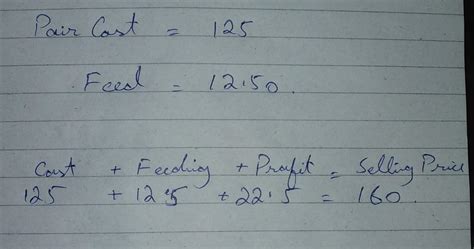 Pair Cost = 125
Feed = 12.50.
Cost + Feeding + Profit = Selling Price
125 + 12.5 + 22.5 = 160.